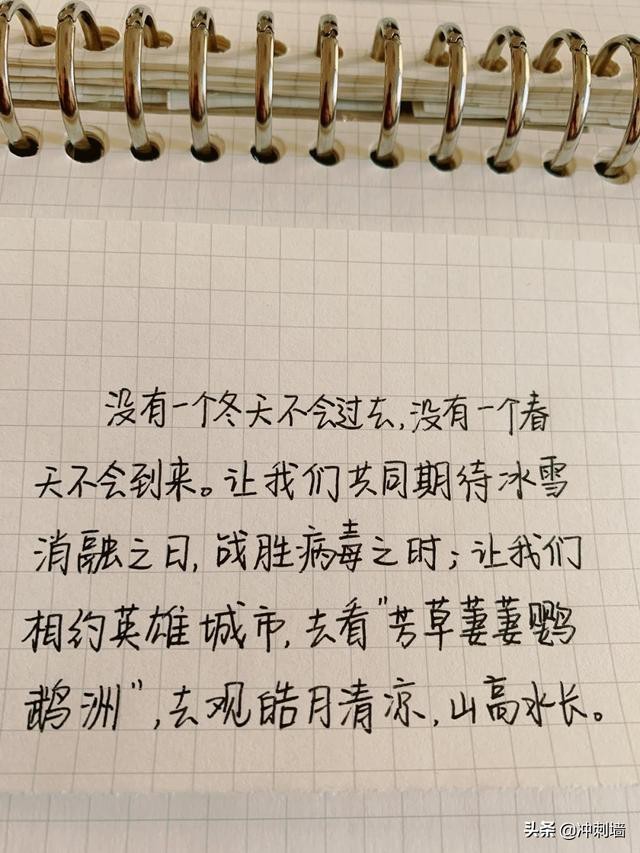 没有一个冬天不会过去,没有一个春
天不会到来。让我们共同期待冰雪
消融之日,战胜病毒之时;让我们
相约英雄城市,去看"芳草萋萋鹦
鹉洲",去观皓月清凉,山高水长。
头条 @冲刺墙